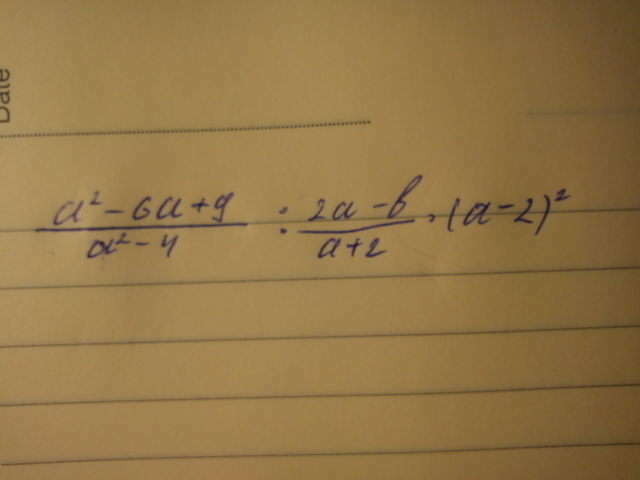 Date
\frac{a^2-6a+9}{a^2-4} : \frac{2a-6}{a+2} \cdot (a-2)^2